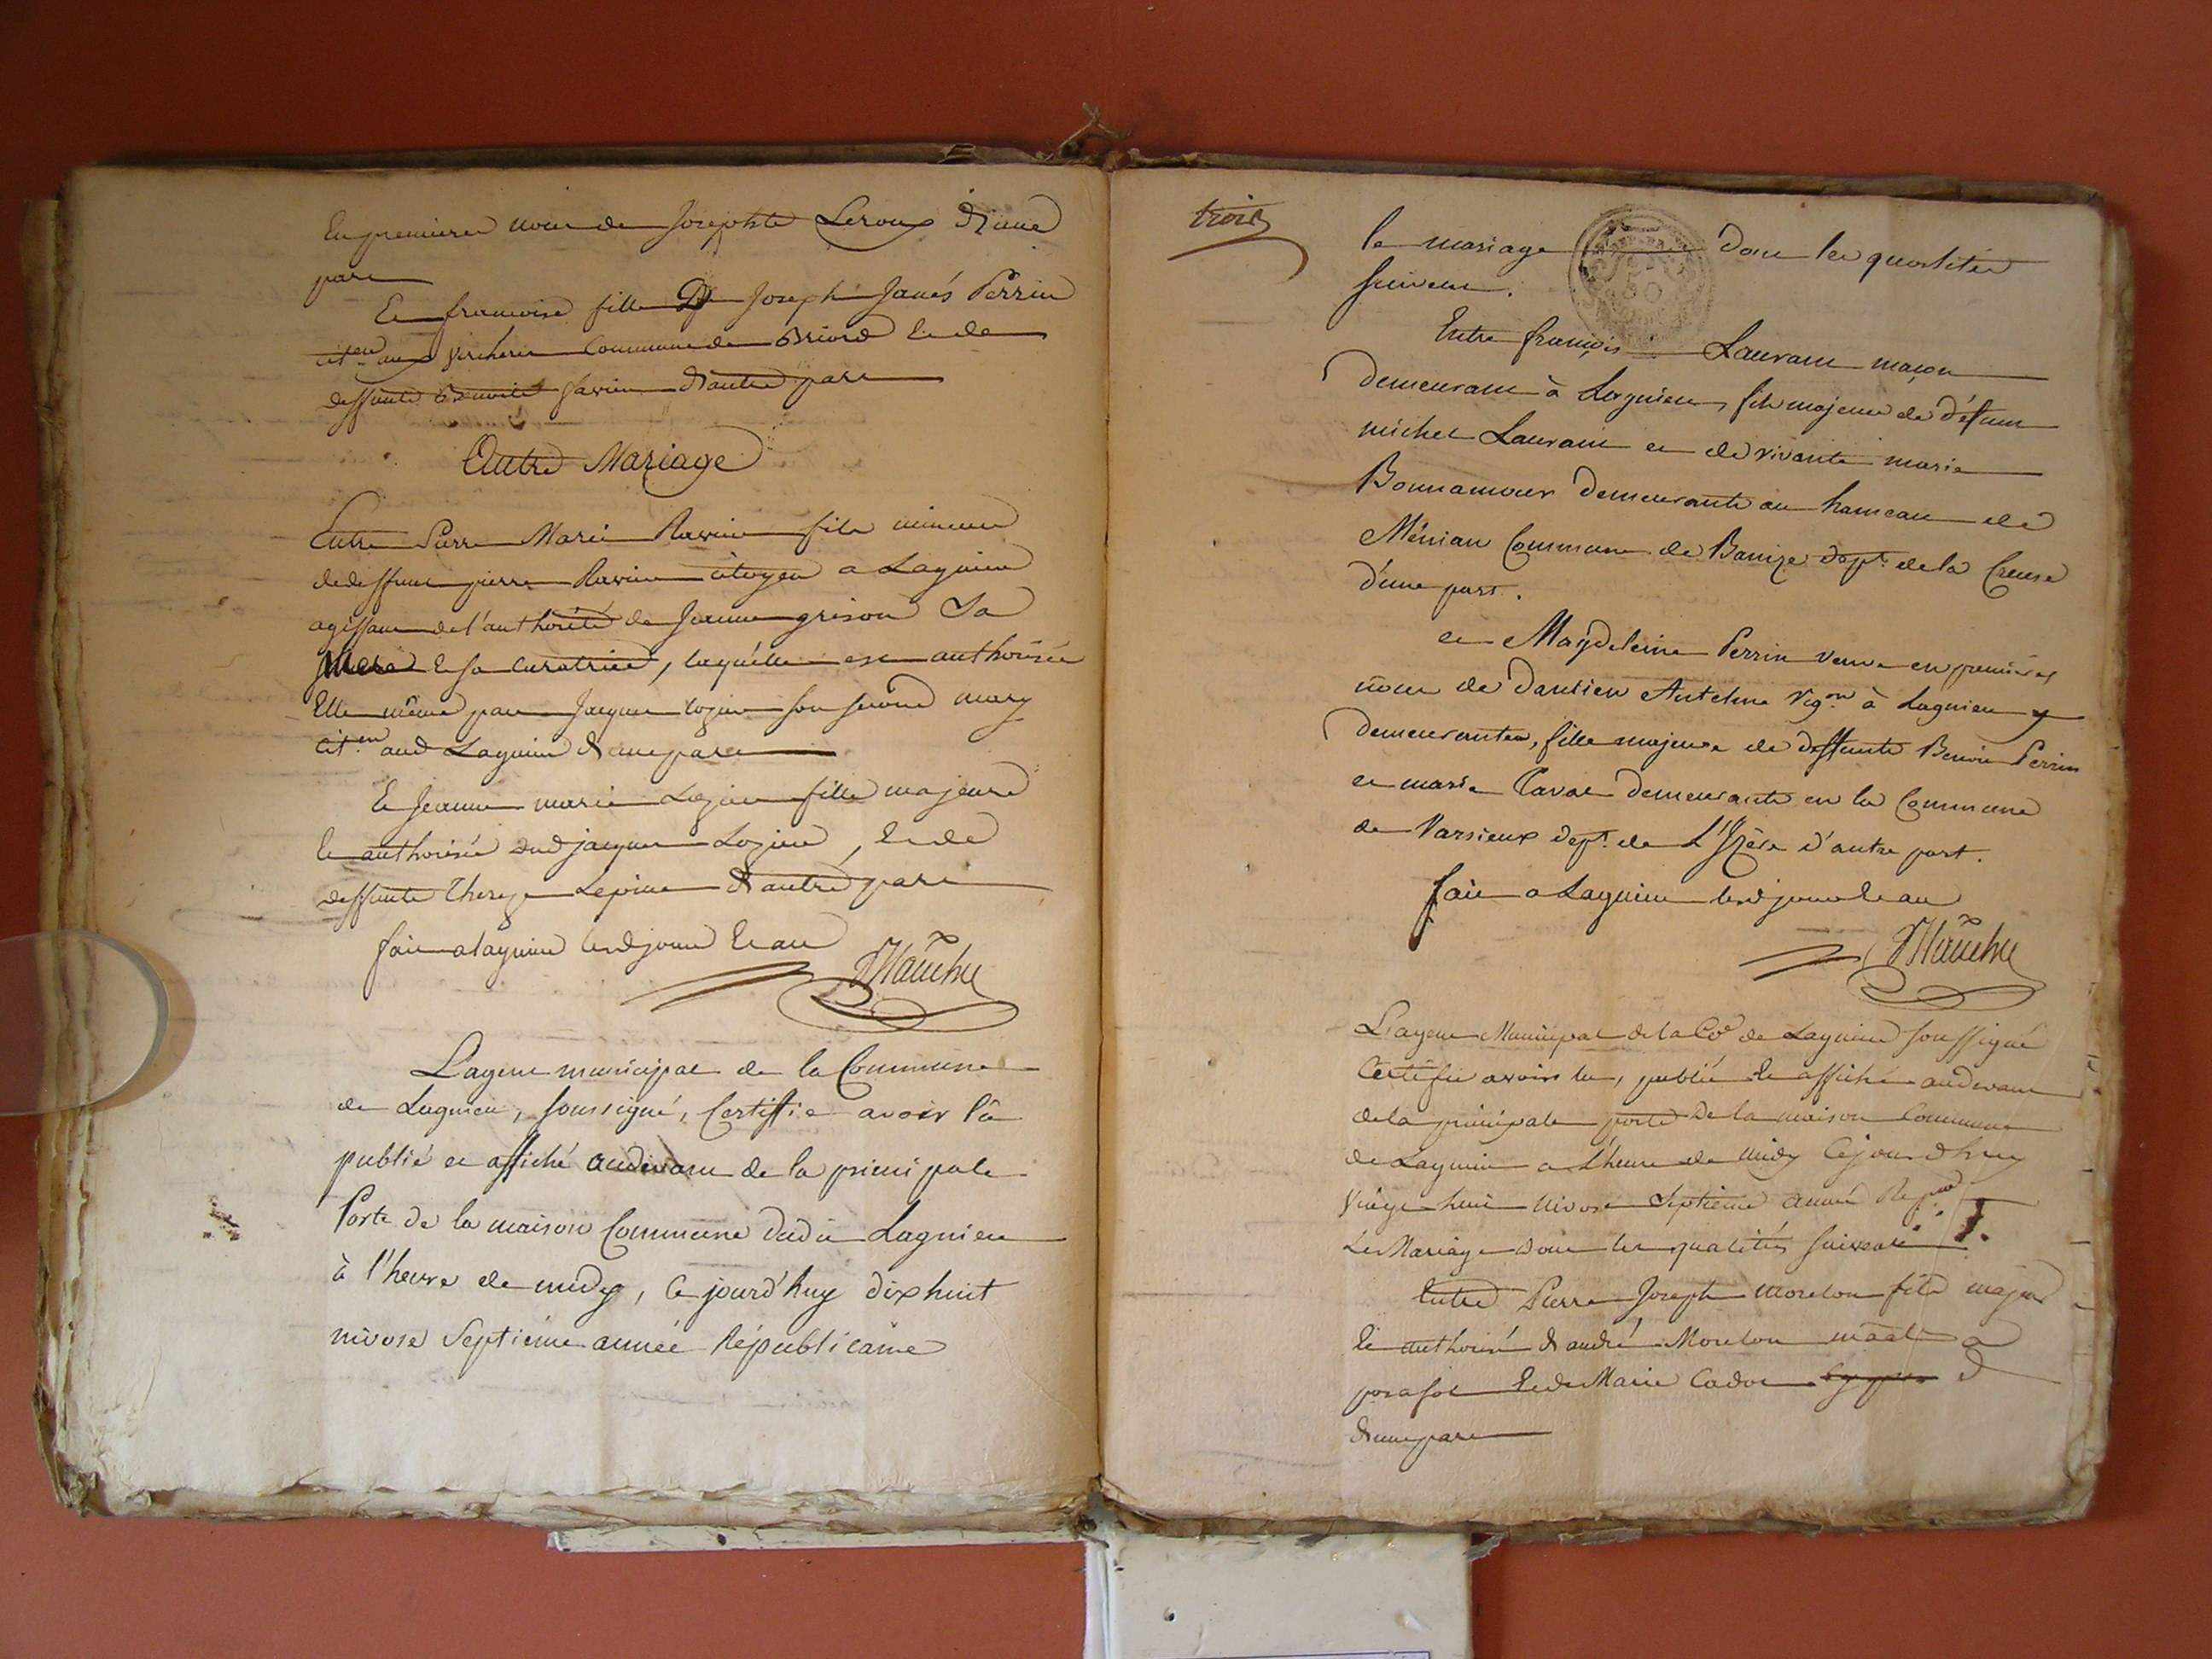 En premieres noces de Josephte Leroux d'une
part
Et francoise fille D Joseph James Perrin
cit.en aux vercheres Commune de Briord et de
deffunte Benoite Savin d'autre part
Autre Mariage
Entre Pierre Marie Ravin fils mineur
de deffunt pierre Ravin citoyen a Lagnieu
agissant de l'authorité de Jeanne grison Sa
Mere et sa curatrice, laquelle est authorisée
Elle même par Jacques Lozier son second mary
cit.en aud Lagnieu d'une part
Et Jeanne marie Lozier fille majeure
et authorisée dud jacques Lozier, et de
deffunte Therese Lepine d'autre part
fait a lagnieu lesd jour et an
L'agent municipal de la Commune
de Lagnieu, soussigné, Certiffie avoir lû
publié et affiché audevant de la principale
Porte de la maison Commune dudit Lagnieu
à l'heure de midy, ce jourd'huy dix huit
nivose Septieme année Républicaine
trois
le mariage dont les qualités
suivent.
Entre françois Laurant maçon
demeurant à Lagnieu, fils majeur de défunt
michel Laurant et de vivante marie
Bonnamour demeurante au hameau de
Ménian Commune de Banize dept. de la Creuse
d'une part.
et Magdeleine Perrin veuve en premieres
noces de Anthelme vig.on à Lagnieu y
demeurantes, fille majeure de deffunte Benoit Perrin
et marie Cavat demeurante en la Commune
de Varsieux dept. de L'Izère d'autre part.
fait a Lagnieu lesd jour et an
L'agent Municipal de la Coe de Lagnieu soussigné
Certifie avoir lu, publié et affiché audevant
de la principale porte de la maison Commune
de Lagnieu a L'heure de midy Cejourdhuy
vingt huit nivose Septieme année Rep
Le Mariage dont les qualités suivent
Entre Pierre Joseph Morelon fils majeur
et authorisé d'andré Morelon a
posafol et de Marie Cadot
d'une part